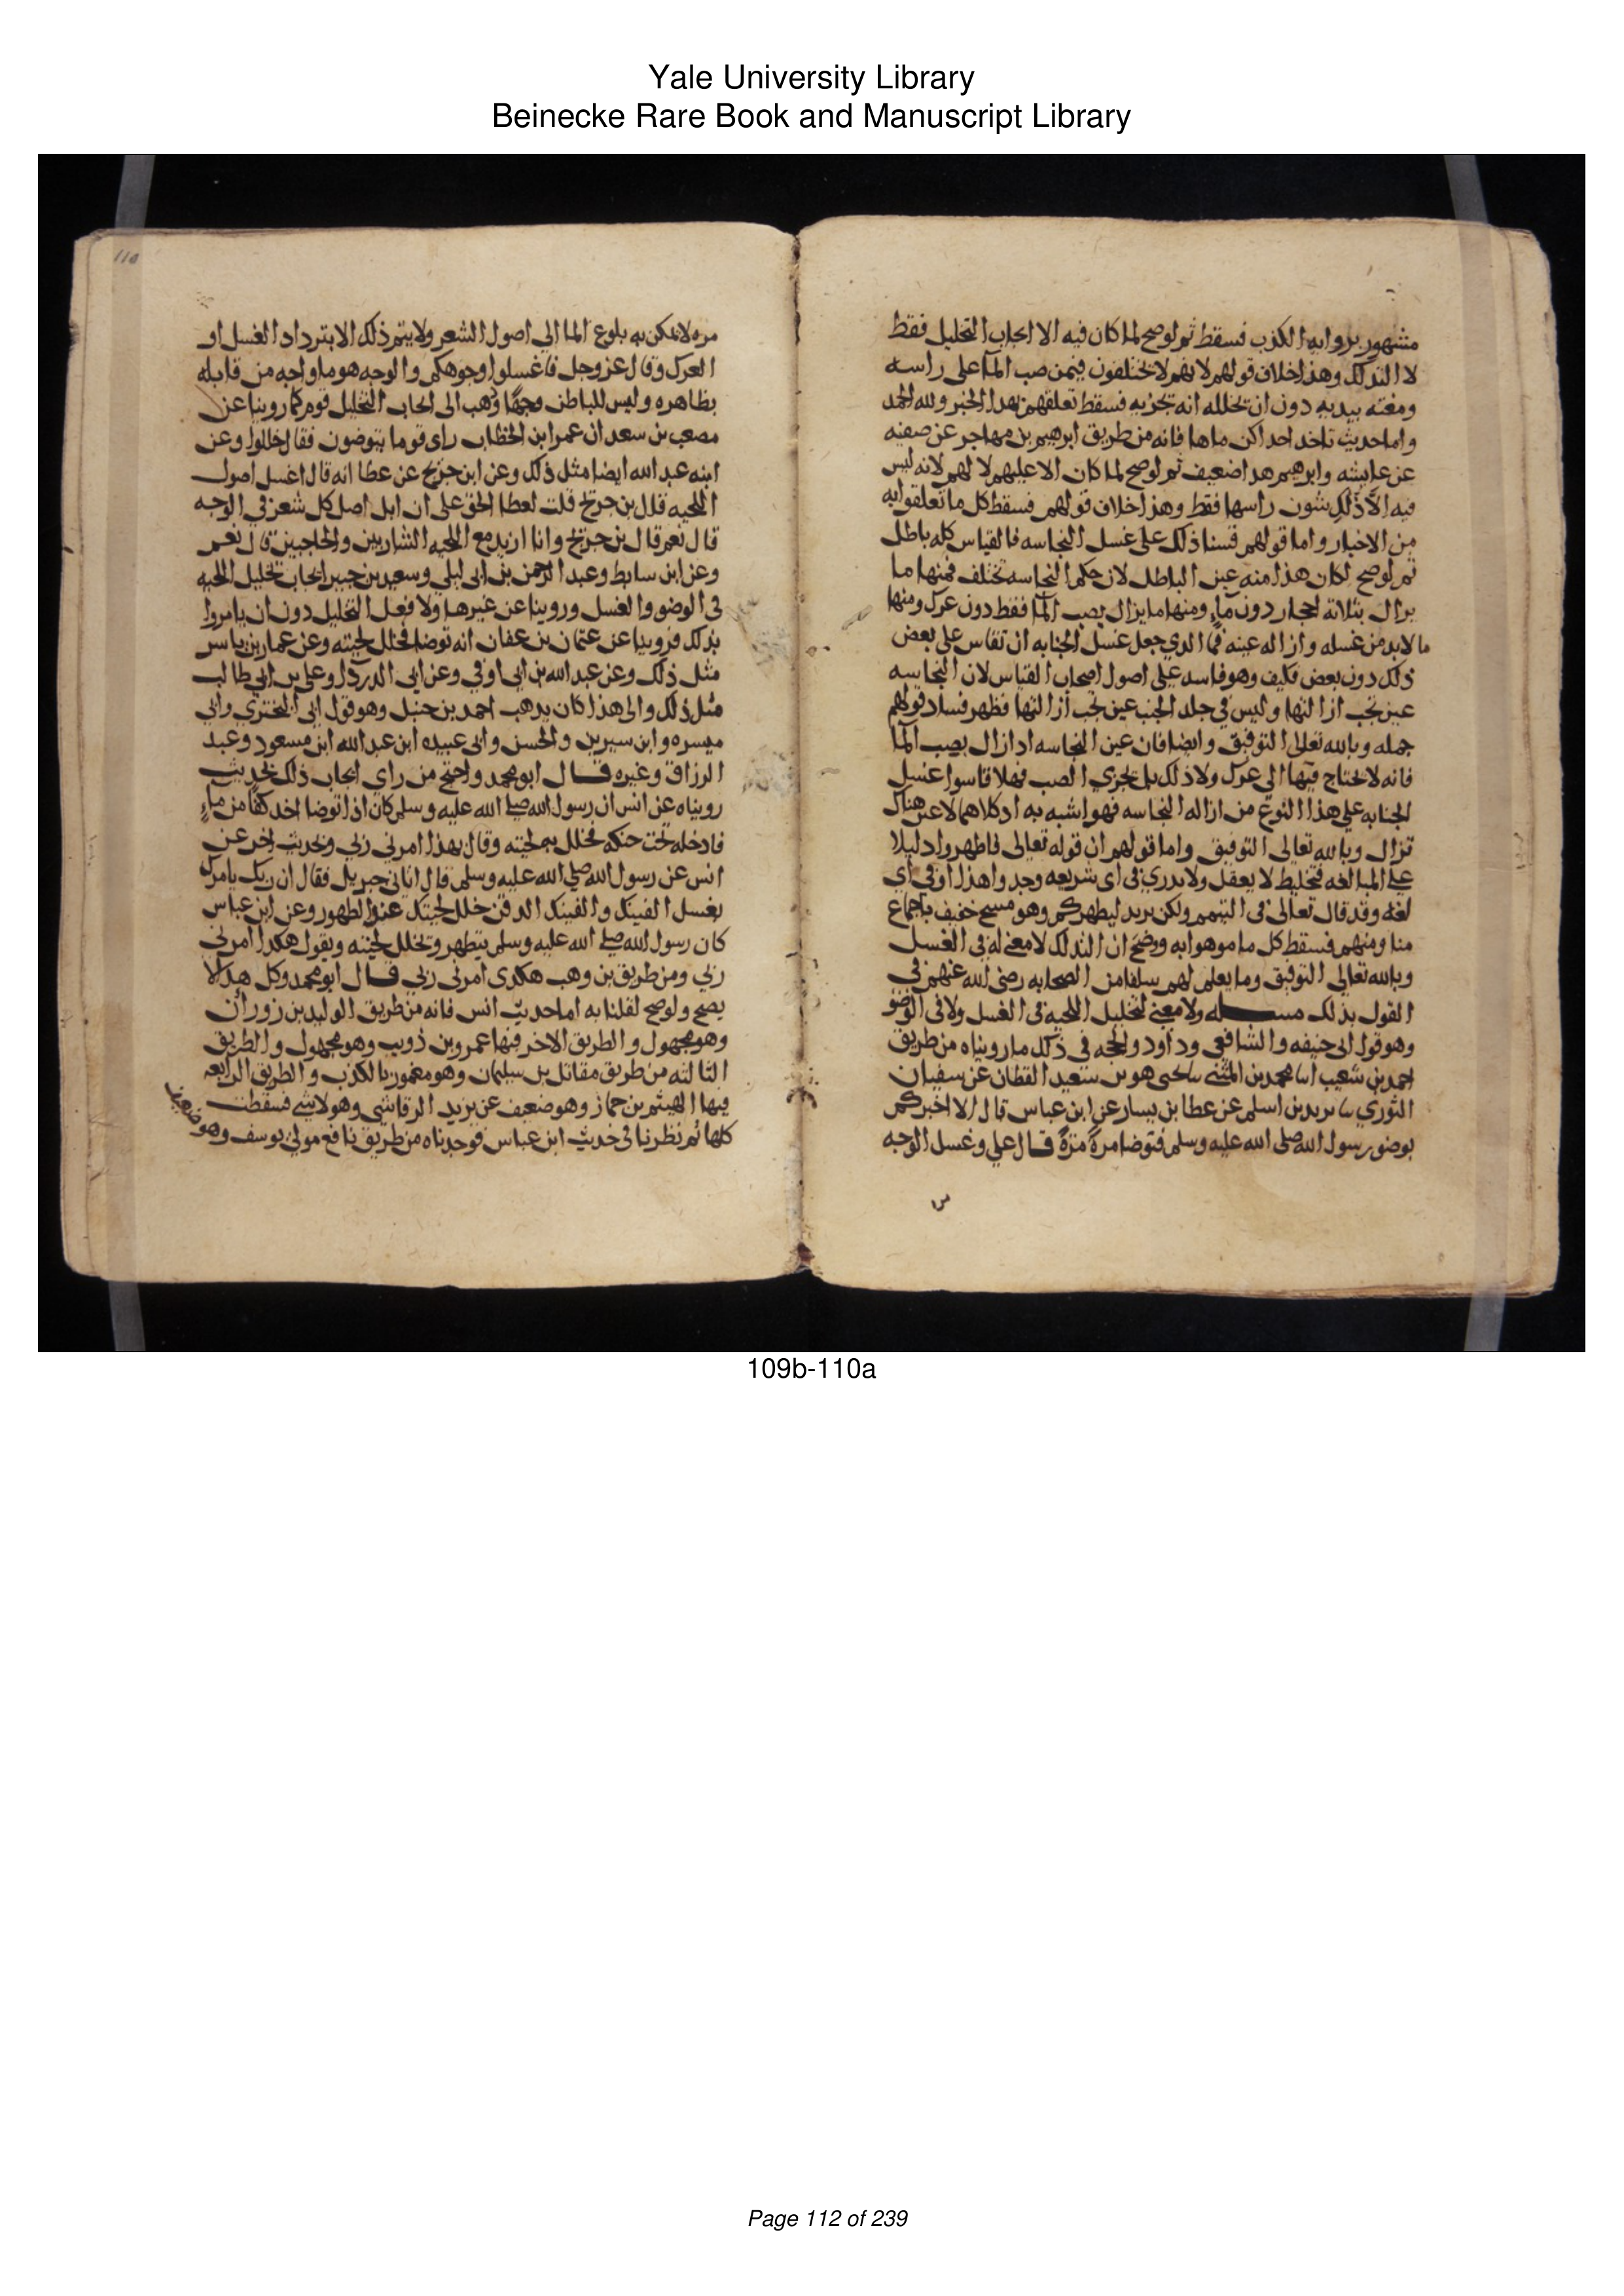 Yale University Library
Beinecke Rare Book and Manuscript Library
مشهور بروايه الكذب فسقط ثم لو صح لما كان فيه الا ايجاب التخليل فقط
لا التدلك وهذا خلاف قولهم لانهم لا يختلفون فيمن صب الما على راسه
ومغثه بيديه دون ان يخلله انه يجزيه فسقط تعلقهم بهذا الخبر ولله الحمد
واما حديث تاخذ احداكن ماها فانه من طريق ابرهيم بن مهاجر عن صفيه
عن عايشه وابرهيم هذا ضعيف ثم لو صح لما كان الا عليهم لا لهم لانه ليس
فيه الا دلك شون راسها فقط وهذا خلاف قولهم فسقط كل ما تعلقوا به
من الاخبار واما قولهم قسنا ذلك على غسل النجاسه فالقياس كله باطل
ثم لو صح لكان هذا منه عين الباطل لان حكم النجاسه تختلف فمنها ما
يزال بثلاثة احجار دون ماء ومنها ما يزال بصب الما فقط دون عرك ومنها
ما لا بد من غسله وازاله عينه فما الذي جعل غسل الجنابه ان تقاس على بعض
ذلك دون بعض فكيف وهو فاسد على اصول اصحاب القياس لان النجاسه
عين تجب ازالتها وليس في جلد الجنب عين تجب ازالتها فظهر فساد قولهم
جمله وبالله تعالى التوفيق وايضا فان عين النجاسه اذا زال بصب الما
فانه لا يحتاج فيها الى عرك ولا دلك بل يجزي الصب فهلا قاسوا غسل
الجنابه على هذا النوع من ازاله النجاسه فهو اشبه به اذ كلاهما لا عين هناك
تزال وبالله تعالى التوفيق واما قولهم ان قوله تعالى فاطهروا دليلا
على المبالغه فتخليط لا يعقل ولا ندري في اى شريعه وجدوا هذا او في اى
لغه وقد قال تعالى في التيمم ولكن يريد ليطهركم وهو مسح خفيف باجماع
منا ومنهم فسقط كل ما موهوا به وصح ان التدلك لا معنى له في الغسل
وبالله تعالى التوفيق وما يعلم لهم سلفا من الصحابه رضي الله عنهم في
القول بذلك مسـله ولا معنى لتخليل اللحيه في الغسل ولا في الوضو
وهو قول ابى حنيفه والشافعي وداود والحجه في ذلك ما رويناه من طريق
احمد بن شعيب انا محمد بن المثنى نا يحيى هو بن سعيد القطان عن سفيان
الثوري نا زيد بن اسلم عن عطا بن يسار عن ابن عباس قال الا اخبركم
بوضو رسول الله صلى الله عليه وسلم فتوضا مرة مرة قال علي وغسل الوجه
110
مره لا يمكن به بلوغ الما الى اصول الشعر ولا يتم ذلك الا بترداد الغسل او
العرك وقال عز وجل فاغسلوا وجوهكم والوجه هو ما واجه من قابله
بظاهره وليس للباطن وجها وذهب الى ايجاب التخليل قوم كما روينا عن
مصعب بن سعد ان عمر ابن الخطاب راى قوما يتوضون فقال خللوا وعن
ابنه عبد الله ايضا مثل ذلك وعن ابن جريج عن عطا انه قال اغسل اصول
اللحيه قال بن جريج قلت لعطا الحق على ان ابل اصل كل شعر في الوجه
قال نعم قال بن جريج وانا ازيد مع اللحيه الشاربين والحاجبين قال نعم
وعن ابن سابط وعبد الرحمن بن ابى ليلى وسعيد بن جبير ايجاب تخليل اللحيه
في الوضو والغسل وروينا عن غيرها ولا فعل التخليل دون ان يامروا
بذلك فروينا عن عثمان بن عفان انه توضا فخلل لحيته وعن عمار بن ياسر
مثل ذلك وعن عبد الله بن ابى اوفى وعن ابى الدردا وعلي بن ابي طالب
مثل ذلك والى هذا كان يذهب احمد بن حنبل وهو قول ابى البختري وابي
ميسره وابن سيرين والحسن وابى عبيده ابن عبد الله ابن مسعود وعبد
الرزاق وغيره قال ابو محمد واحتج من راى ايجاب ذلك بحديث
رويناه عن انس ان رسول الله صلى الله عليه وسلم كان اذا توضا اخذ كفا من ماء
فادخله تحت حنكه فخلل به لحيته وقال بهذا امرني ربي وبحديث اخر عن
انس عن رسول الله صلى الله عليه وسلم قال اتاني جبريل فقال ان ربك يامرك
بغسل الفينك والفينك الدقن خلل لحيتك عند الطهور وعن ابن عباس
كان رسول الله صلى الله عليه وسلم يتطهر وتخلل لحيته ويقول هكذا امرني
ربي ومن طريق بن وهب هكذى امرني ربي قال ابو محمد وكل هذا لا
يصح ولو صح لقلنا به اما حديث انس فانه من طريق الوليد بن زوران
وهو مجهول والطريق الاخر فيها عمرو بن ذويب وهو مجهول والطريق
الثالثه من طريق مقاتل بن سليمان وهو مغموز بالكذب والطريق الرابعه
فيها الهيثم بن جماز وهو ضعيف عن يزيد الرقاشي وهو لا شي فسقطت
كلها ثم نظرنا في حديث ابن عباس فوجدناه من طريق نافع مولى يوسف وهو ضعيف
109b-110a
Page 112 of 239